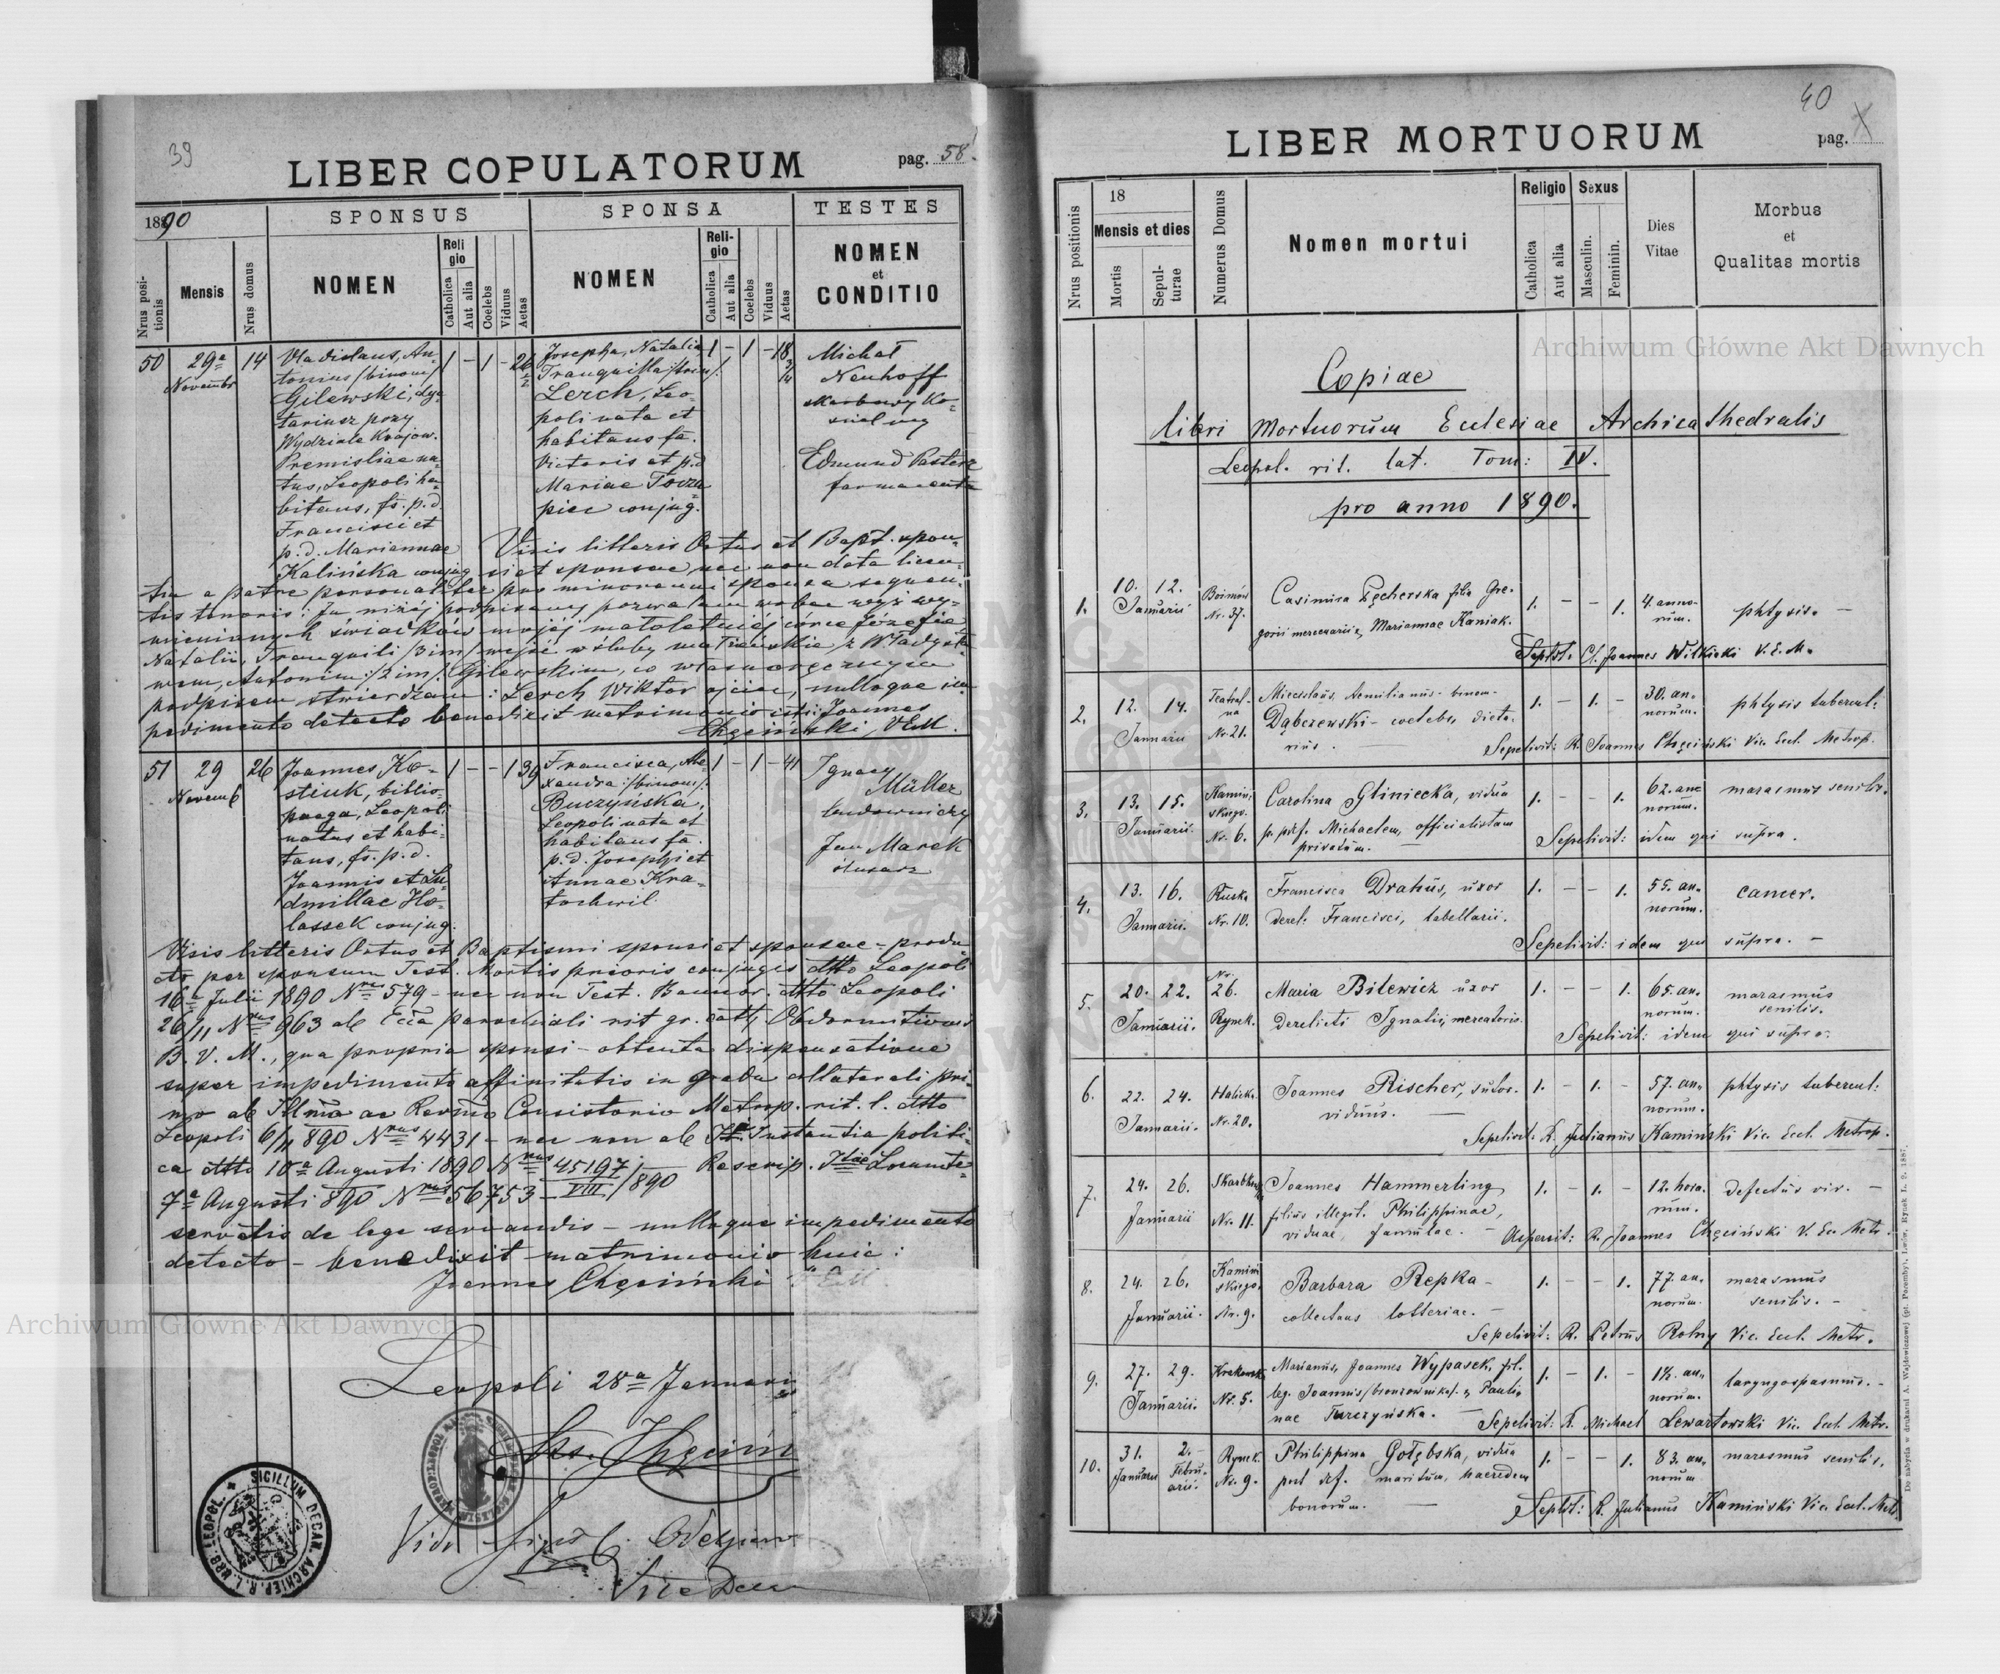 39
LIBER COPULATORUM
pag. 58.
1890
SPONSUS
SPONSA
TESTES
Nrus positionis
Mensis
Nrus domus
NOMEN
Religio
Catholica
Aut alia
Coelebs
Viduus
Aetas
NOMEN
Religio
Catholica
Aut alia
Coelebs
Viduus
Aetas
NOMEN
et
CONDITIO
50
29a
Novembr
14
Vladislaus, An-
tonius /binom/
Gilewski, dye-
tariusz przy
Wydziale Krajow.
Premisliae na-
tus, Leopoli ha-
bitans, fs. p. d.
Francisci et
p. d. Mariannae
Kalińska conjug
1 - 1 - 26
Josepha, Natalia
Tranquilla /trin/
Lerch, Leo-
poli nata et
habitans fa.
Victoris et p. d
Mariae Tovzu
piec conjug.
1 - 1 - 18 3/4
Michał
Neuhoff
skarbowy Ko-
Edmund Pasterz
farmaceuta
Visis litteris Ortus et Bapt. spon-
si et sponsae, nec non data licen-
tia a patre personaliter pro minorenni sponsa sequen-
tis tenoris: Ja niżej podpisany pozwalam wobec wyż wy-
mienionych świadków mojej małoletniej córce Józefie
Natalii, Tranquili /3im/ wejść w śluby małżeńskie, z Władysła-
wem, Antonim /2 im/ Gilewskim, co własnoręcznym
podpisem stwierdzam: Lerch Wiktor ojciec, nulloque im-
pedimento detecto benedixit matrimonio isti: Joannes
Chęciński, VEM.
51
29
Novemb
26
Joannes Ko-
stiuk, biblio-
paega, Leopoli
natus et habi-
tans, fs. p. d.
Joannis et Lu-
dmillae Ho-
lassek conjug.
1 - - 1 39
Francisca, Ale-
xandra /binom/
Buczyńska,
Leopoli nata et
habitans fa.
p. d. Josephi et
Annae Kra-
tochwil.
1 - 1 - 41
Ignacy
Müller
budowniczy
Jan Marek
ślusarz
Visis litteris Ortus et Baptismi sponsi et sponsae - produ
cto per sponsum Test. Mortis prioris conjugis dtto Leopoli
16a Julii 1890 Nrus 579 - nec non Test. Bannor. dtto Leopoli
26/11 Nrus 963 ab Ecla parochiali rit. gr. cath. Obdormitionis
B. V. M., qua propria sponsi - obtenta dispensatione
super impedimento affinitatis in gradu collaterali pri-
mo ab Illmo ac Revmo Consistorio Metrop. rit. l. dtto
Leopoli 6/11 890 Nrus 4431 - nec non ab Instantia politi-
ca dtto 10a Augusti 1890 Nrus 45197/VIII/1890 Rescrip. Locumte-
7a Augusti 890 Nrus 56753
servatis de lege servandis - nulloque impedimento
detecto - benedixit matrimonio huic:
Joannes Chęciński VEM
Leopoli 28a Januarii
Vidi
Vice Dec
SIGILLUM DECAN. ARCHIEP. R. L. URB. LEOPOL.
40
LIBER MORTUORUM
pag.
Nrus positionis
18
Mensis et dies
Mortis
Sepulturae
Numerus Domus
Nomen mortui
Religio
Catholica
Aut alia
Sexus
Masculin.
Feminin.
Dies
Vitae
Morbus
et
Qualitas mortis
Copiae
libri Mortuorum Eclesiae Archicathedralis
Leopol. rit. lat. Tom: IV.
pro anno 1890.
1.
10. 12.
Januarii
Boimów
Nr. 37.
Casimira Pęcherska filia Gre-
gorii mercenarii & Mariannae Kaniak.
1. - - 1.
4. anno-
rum.
phtysis. -
Septlt. Cl. Joannes Wilkicki V. E. M.
2.
12. 14.
Januarii
Teatral-
na
Nr. 21.
Miecslaus, Aemilianus - binom-
Dąbczewski - coelebs, dieta-
rius.
1. - 1. -
30. an-
norum.
phtysis tubercul:
Sepelivit: R. Joannes Chęciński Vic. Eccl. Metrop.
3.
13. 15.
Januarii.
Kamin-
skiego.
Nr. 6.
Carolina Gliniecka, vidua
p. def. Michaelem, officialistam
privatum.
1. - - 1.
62. an-
norum.
marasmus senilis.
Sepelivit: idem qui supra.
4.
13. 16.
Januarii.
Ruska
Nr. 10.
Francisca Drahus, uxor
derel: Francisci, tabellarii.
1. - - 1.
55. an-
norum.
cancer.
Sepelivit: idem qui supra. -
5.
20. 22.
Januarii.
Nr.
26.
Rynek.
Maria Bilewicz uxor
derelicti Ignatii, mercatoris.
1. - - 1.
65. an.
norum.
marasmus
senilis.
Sepelivit: idem qui supra.
6.
22. 24.
Januarii.
Halick.
Nr. 20.
Joannes Rischer, sutor.
viduus.
1. - 1. -
57. an-
norum.
phtysis tubercul:
Sepelivit: R. Julianus Kamiński Vic. Eccl. Metrop.
7.
24. 26.
Januarii
Skarbkow
Nr. 11.
Joannes Hammerling
filius illegit. Philippinae,
viduae, famulae. -
1. - 1. -
12. hora-
rum.
defectus vir. -
Aspersit: R. Joannes Chęciński V. Ecc. Metr.
8.
24. 26.
Januarii.
Kamiń
skiego.
Nr. 9.
Barbara Repka -
collectans lotteriae. -
1. - - 1.
77. an.
norum.
marasmus
senilis. -
Sepelivit: R. Petrus Rolny Vic. Eccl. Metr.
9.
27. 29.
Januarii.
Krakowsk.
Nr. 5.
Marianus, Joannes Wypasek, fil.
leg. Joannis /bronzownika/ & Pauli-
nae Turczyńska. -
1. - 1. -
1½. an.
norum.
laryngospasmus. -
Sepelivit: R. Michael Lewartowski Vic. Eccl. Metr.
10.
31.
Januarii
2.
Febru-
arii.
Rynek.
Nr. 9.
Philippina Gołębska, vidua
post def. maritum, haeredem
bonorum.
1. - - 1.
83. an.
norum
marasmus senilis.
Septlt: R. Julianus Kamiński Vic. Eccl. Metr.
Archiwum Główne Akt Dawnych
Archiwum Główne Akt Dawnych